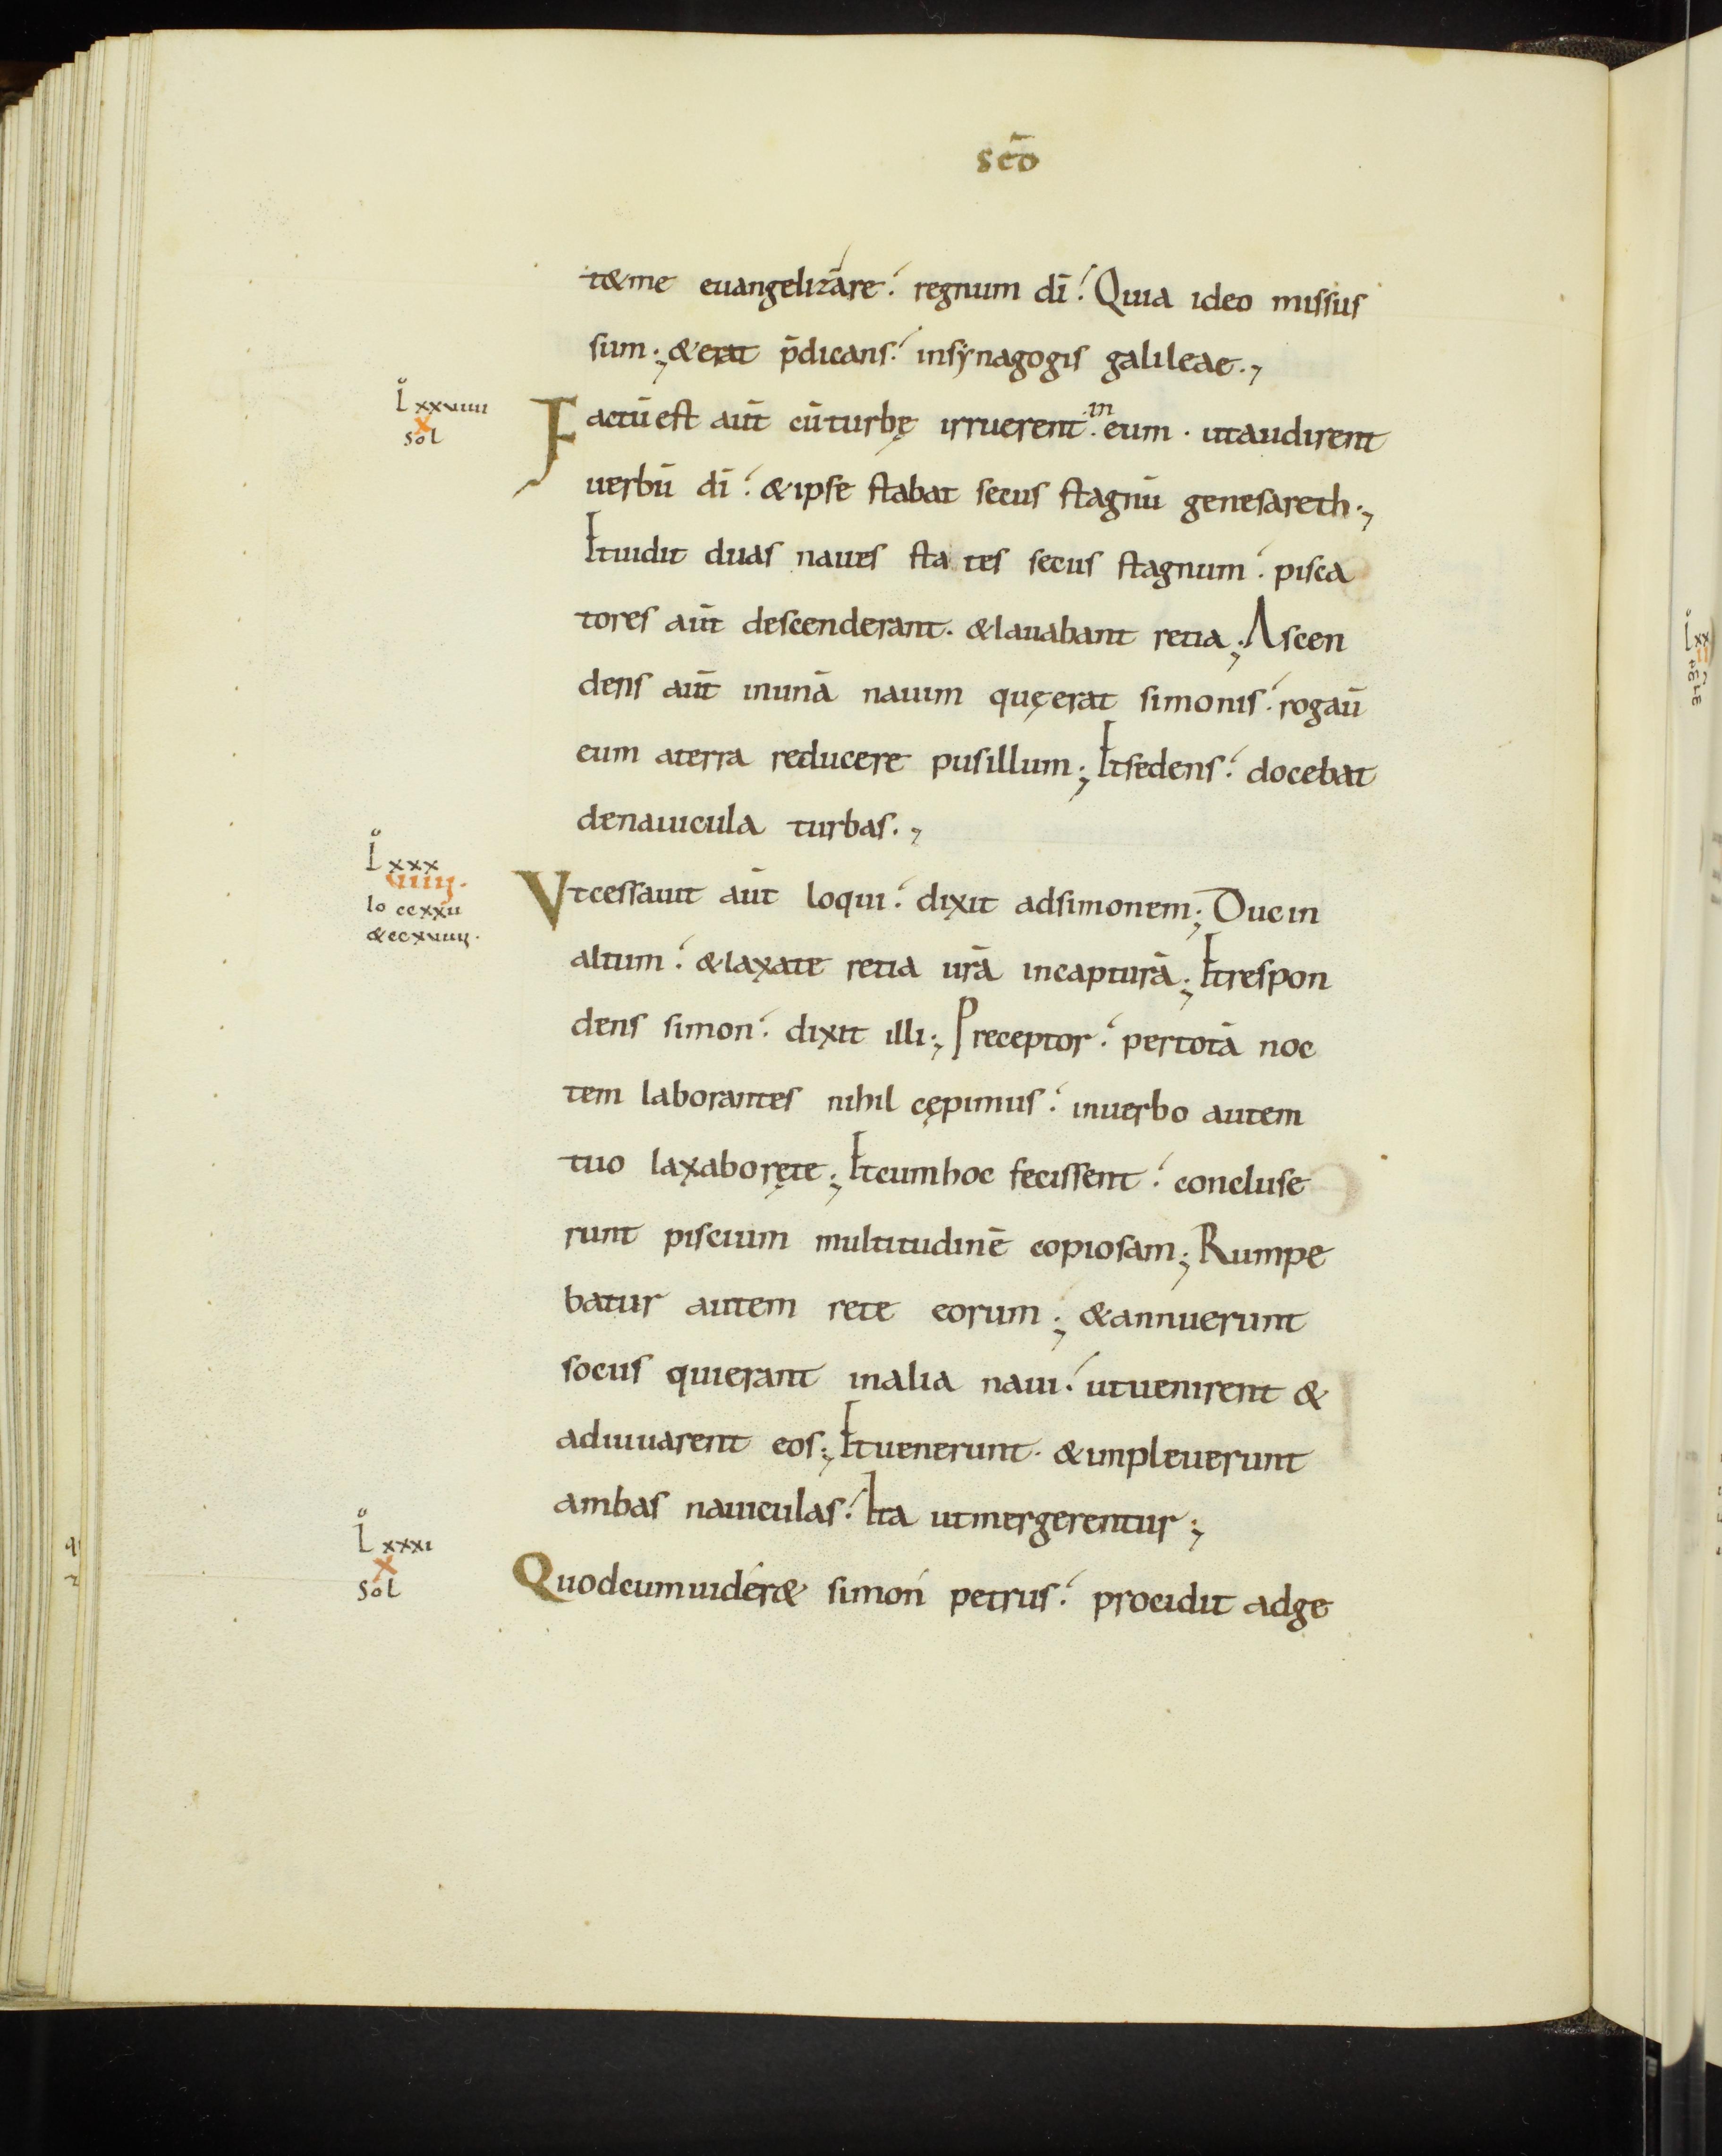 scō
t&me euangelizare. regnum dī. Quia ideo missus
sum; & erat p̄dicans. insynagogis galileae.,
L xxviiii
X
sol
Factū est aūt cū turbę irruerent in eum · utaudirent
uerbū dī. & ipse stabat secus stagnū genesareth.,
Et uidit duas naues sta tes secus stagnum. pisca
tores aūt descenderant. & lauabant retia; Ascen
dens aūt inunā nauim quęerat simonis. rogaū
eum aterra reducere pusillum; Et sedens. docebat
denauicula turbas.,
L xxx
viiii.
io ccxxii
& ccxviiii.
Vt cessauit aūt loqui. dixit adsimonem; Duc in
altum. & laxate retia urā incapturā; Et respon
dens simon. dixit illi; Preceptor. pertotā noc
tem laborantes nihil cępimus. inuerbo autem
tuo laxaboręte; Et cumhoc fecissent. concluse
runt piscium multitudinē copiosam; Rumpe
batur autem rete eorum; & annuerunt
sociis quierant inalia naui. utuenirent &
adiuuarent eos; Et uenerunt. & impleuerunt
ambas nauiculas. Ita utmergerentur;
L xxxi
X
sol
Quodcumuider& simon petrus. procidit adge